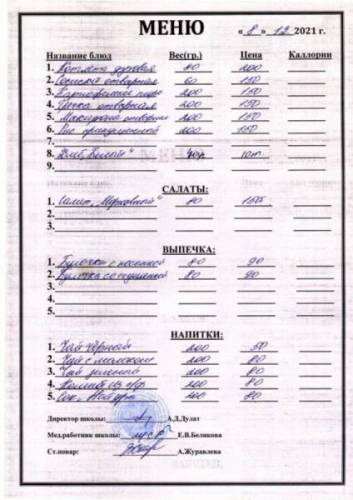 МЕНЮ « 8 » 12 2021 г.
Название блюд Вес(гр.) Цена Каллории
1. Котлета духовая 80 200
2. Сосиска отварная 60 150
3. Картофельное пюре 200 150
4. Гречка отварная 200 150
5. Макароны отварные 200 150
6. Рис припущенный 200 150
7.
8. Хлеб 10т.
9.
САЛАТЫ:
1. Салат "Морковный" 80 150
2.
3.
ВЫПЕЧКА:
1. Булочка с 80 90
2. Булочка со сгущенкой 80 90
3.
4.
5.
НАПИТКИ:
1. Чай чёрный 200 50
2. Чай с молоком 200 80
3. Чай зеленый 200 80
4. Компот из с/ф 200 80
5. Сок 200 80
Директор школы: А.Д.Дулат
Мед.работник школы: Е.В.Беликова
Ст.повар: А.Журавлева